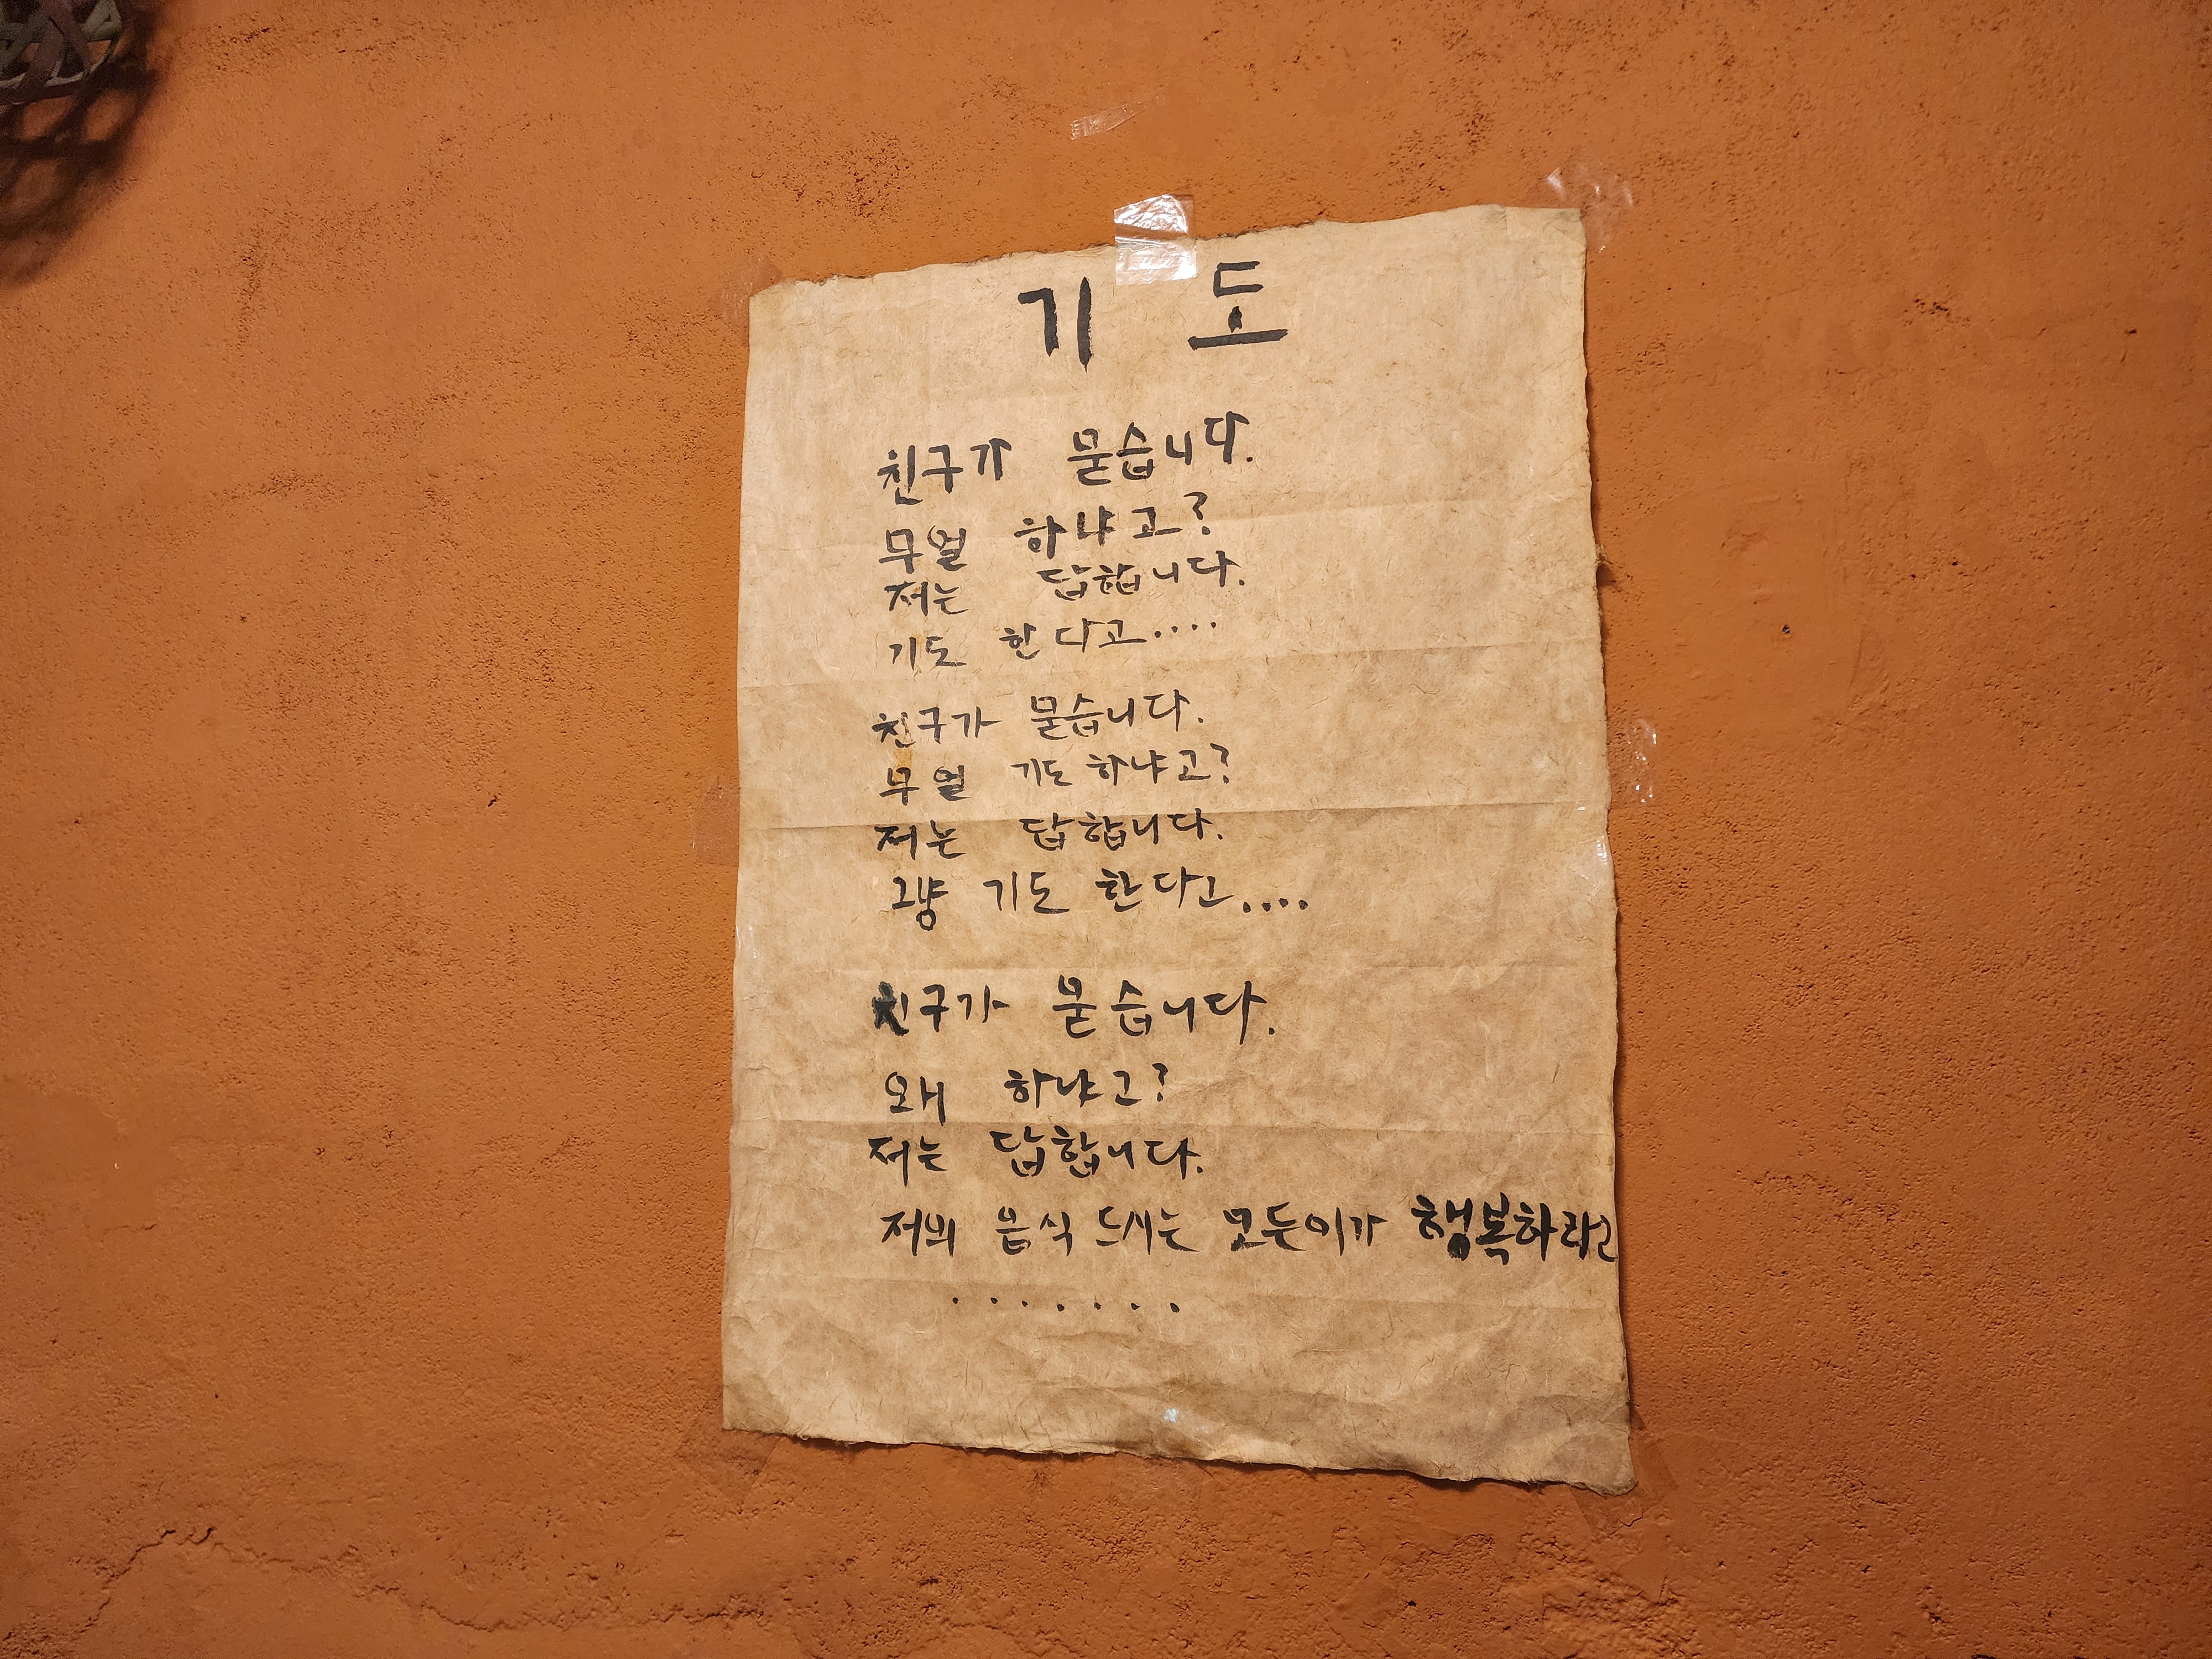 기 도
친구가 묻습니다.
무얼 하냐고?
저는 답합니다.
기도 한다고....
친구가 묻습니다.
무얼 기도 하냐고?
저는 답합니다.
그냥 기도 한다고....
친구가 묻습니다.
왜 하냐고?
저는 답합니다.
저의 음식 드시는 모든이가 행복하라고
.......